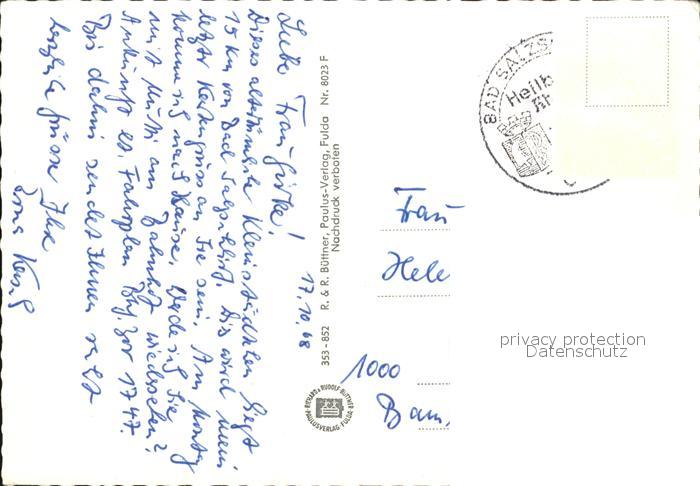 17.10.68
Liebe Frau Girke!
Dieses altertümliche Kleinstädtchen liegt
15 km von Bad Salzschlirf. Dies wird mein
letzter Kartengruss an Sie sein. Am Montag
komme ich nach Hause. Werde ich Sie
mit Mutti am Bahnhof wiedersehen?
Ankunft lt. Fahrplan Bhf. Zoo 17 47.
Bis dahin sendet Ihnen recht
herzliche Grüsse Ihre
Erna
353 - 852 R. & R. Büttner, Paulus-Verlag, Fulda Nr. 8023 F
Nachdruck verboten
RICHARD & RUDOLF BÜTTNER
PAULUSVERLAG FULDA
BAD SALZS
Heilb
Frau
Hele
1000
privacy protection
Datenschutz